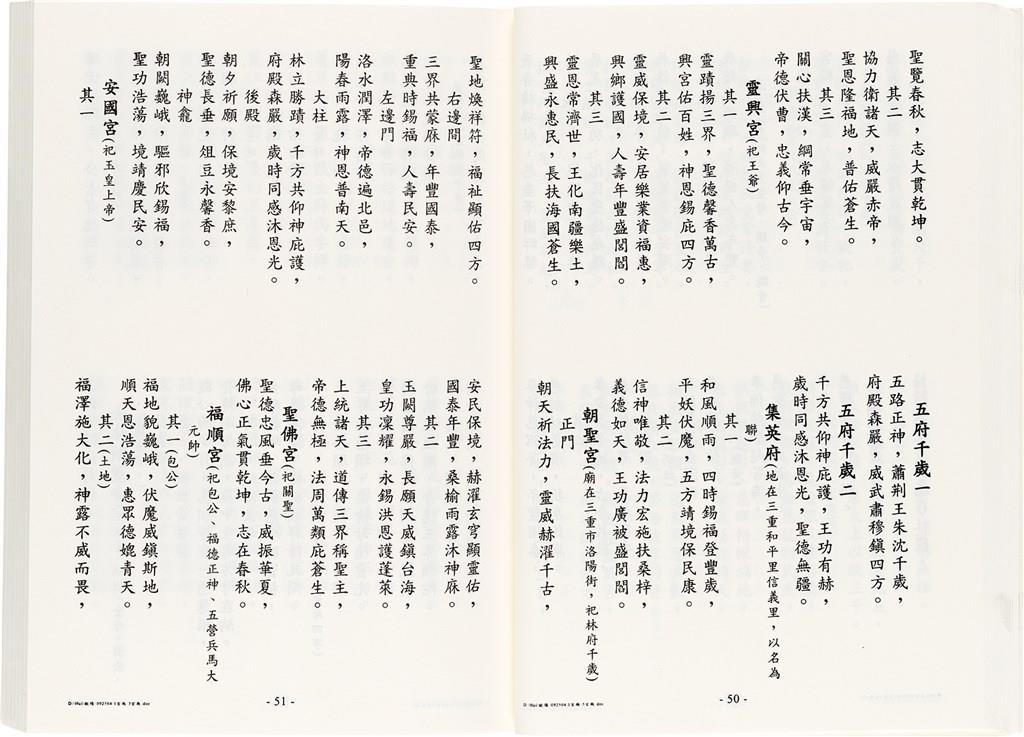 聖覽春秋，志大貫乾坤。
其二
協力衛諸天，威嚴赤帝，
聖恩隆福地，普佑蒼生。
其三
關心扶漢，綱常垂宇宙，
帝德伏曹，忠義仰古今。
靈興宮(祀王爺)
其一
靈蹟揚三界，聖德馨香萬古，
興宮佑百姓，神恩錫庇四方。
其二
靈威保境，安居樂業資福惠，
興鄉護國，人壽年豐盛閭閻。
其三
靈恩常濟世，王化南疆樂土，
興盛永惠民，長扶海國蒼生。
五府千歲一
五路正神，蕭荆王朱沈千歲，
府殿森嚴，威武肅穆鎮四方。
五府千歲二
千方共仰神庇護，王功有赫，
歲時同感沐恩光，聖德無疆。
集英府(地在三重和平里信義里，以名為
聯)
其一
和風順雨，四時錫福登豐歲，
平妖伏魔，五方靖境保民康。
其二
信神唯敬，法力宏施扶桑梓，
義德如天，王功廣被盛閭閻。
朝聖宮(廟在三重市洛陽街，祀林府千歲)
正門
朝天祈法力，靈威赫濯千古，
- 50 -
聖地煥祥符，福祉顯佑四方。
右邊間
三界共蒙庥，年豐國泰，
重典時錫福，人壽民安。
左邊門
洛水潤澤，帝德遍北邑，
陽春雨露，神恩普南天。
大柱
林立勝蹟，千方共仰神庇護，
府殿森嚴，歲時同感沐恩光。
後殿
朝夕祈願，保境安黎庶，
聖德長垂，俎豆永馨香。
神龕
朝闕巍峨，驅邪欣錫福，
聖功浩蕩，境靖慶民安。
安國宮(祀玉皇上帝)
其一
安民保境，赫濯玄穹顯靈佑，
國泰年豐，桑榆雨露沐神庥。
其二
玉闕尊嚴，長願天威鎮台海，
皇功凜耀，永錫洪恩護蓬萊。
其三
上統諸天，道傳三界稱聖主，
帝德無極，法周萬類庇蒼生。
聖佛宮(祀關聖)
聖德忠風垂今古，威振華夏，
佛心正氣貫乾坤，志在春秋。
福順宮(祀包公、福德正神、五營兵馬大
元帥)
其一(包公)
福地貌巍峨，伏魔威鎮斯地，
順天恩浩蕩，惠眾德媲青天。
其二(土地)
福澤施大化，神露不威而畏，
- 51 -